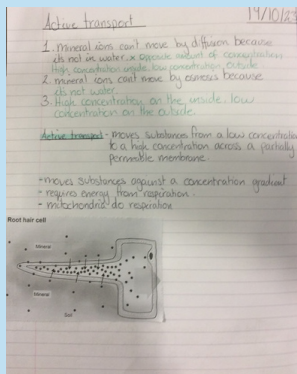 Active transport
19/10/2
1. Mineral ions can't move by diffusion because
its not in water. x opposite amount of concentration
High concentration inside, low concentration outside
2. mineral ions cant move by osmosis because
its not water
3. High concentration on the inside. low
concentration on the outside.
Active transport - moves substances from a low concentration
to a high concentration across a partially
permable membrane.
- moves substances against a concentration gradient
- requires energy from respiration.
- mitochondria do respiration
Root hair cell
Mineral
Mineral
Soil